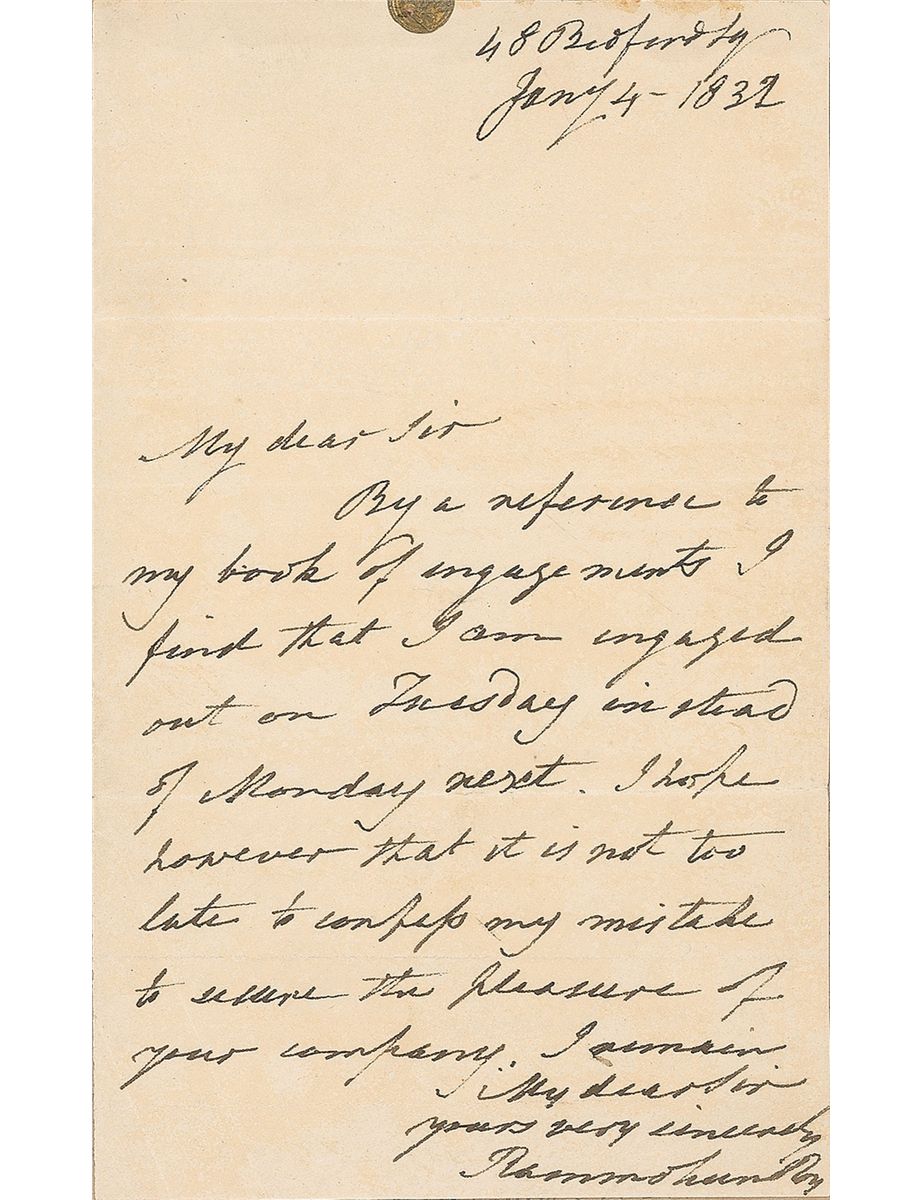 48 Bedford Sq
Jany 4 - 1832
My dear Sir
By a reference to
my book of engagements I
find that I am engaged
out on Tuesday instead
of Monday next. I hope
however that it is not too
late to confess my mistake
to secure the pleasure of
your company. I remain
My dear Sir
yours very sincerely
Rammohun Roy